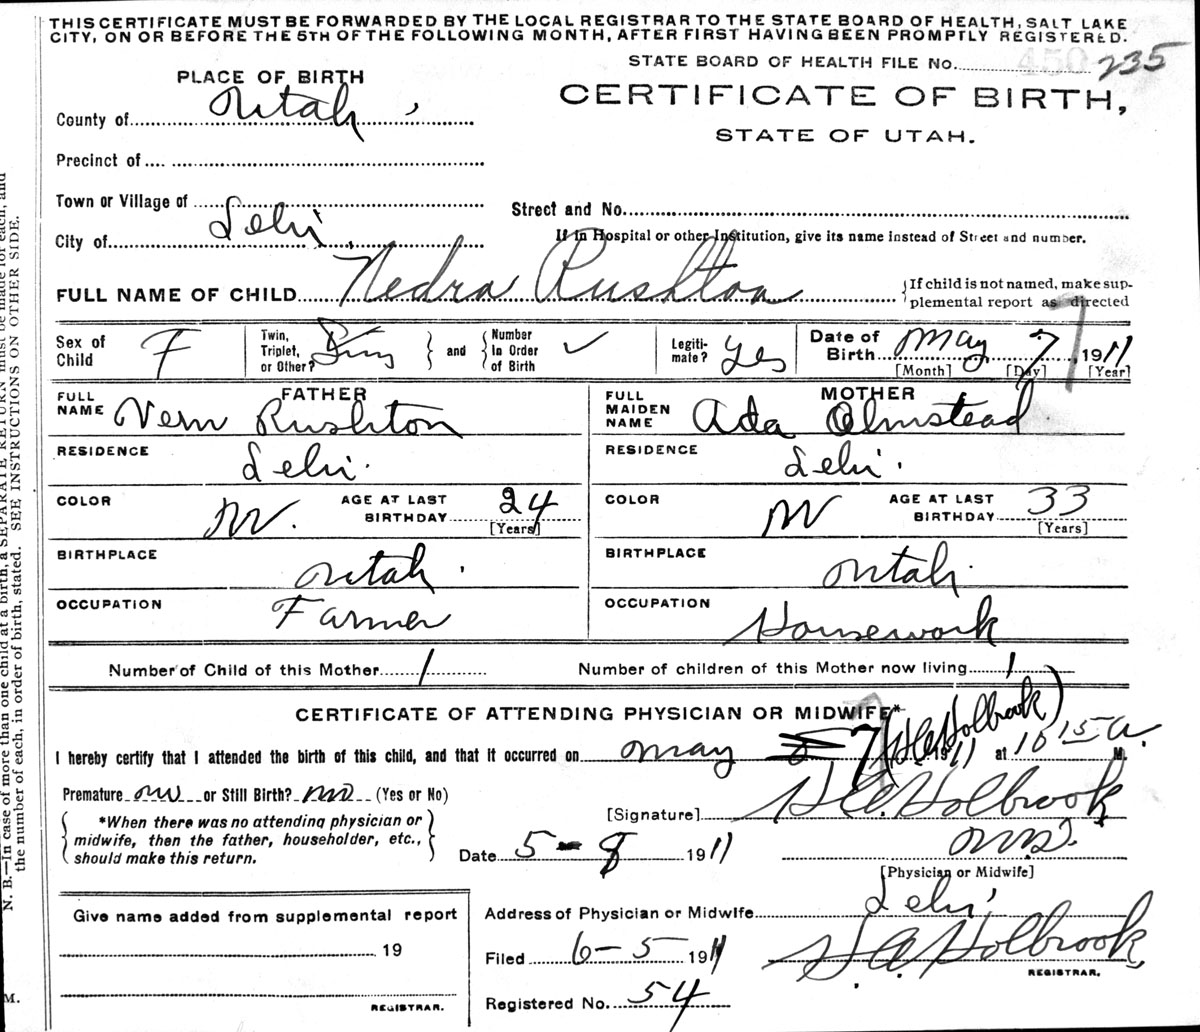 THIS CERTIFICATE MUST BE FORWARDED BY THE LOCAL REGISTRAR TO THE STATE BOARD OF HEALTH, SALT LAKE
CITY, ON OR BEFORE THE 5TH OF THE FOLLOWING MONTH, AFTER FIRST HAVING BEEN PROMPTLY REGISTERED.
STATE BOARD OF HEALTH FILE No. 235
PLACE OF BIRTH
CERTIFICATE OF BIRTH,
STATE OF UTAH.
County of Utah
Precinct of
Town or Village of
Street and No.
City of Lehi
If in Hospital or other Institution, give its name instead of Street and number.
FULL NAME OF CHILD Nedra Rushton
If child is not named, make sup-
plemental report as directed
Sex of Child F
Twin, Triplet, or Other?
and
Number In Order of Birth ✓
Legiti-mate? Yes
Date of Birth May 7, 1911
[Month] [Day] [Year]
FATHER
FULL NAME Vern Rushton
MOTHER
FULL MAIDEN NAME Ada Olmstead
RESIDENCE Lehi.
RESIDENCE Lehi.
COLOR W. AGE AT LAST BIRTHDAY 24
[Years]
COLOR W AGE AT LAST BIRTHDAY 33
[Years]
BIRTHPLACE Utah.
BIRTHPLACE Utah.
OCCUPATION Farmer
OCCUPATION Housework
Number of Child of this Mother 1
Number of children of this Mother now living 1
CERTIFICATE OF ATTENDING PHYSICIAN OR MIDWIFE*
I hereby certify that I attended the birth of this child, and that it occurred on May 7 (Holbrook) 1911 at 10 15 a. M.
Premature no or Still Birth? no (Yes or No)
*When there was no attending physician or
midwife, then the father, householder, etc.,
should make this return.
[Signature] Holbrook
M.D.
[Physician or Midwife]
Date 5-8 1911
Address of Physician or Midwife Lehi
Filed 6-5 1911
Holbrook
REGISTRAR.
Registered No. 54
Give name added from supplemental report
19
REGISTRAR.
N. B.—In case of more than one child at a birth, a SEPARATE RETURN must be made for each, and
the number of each, in order of birth, stated. SEE INSTRUCTIONS ON OTHER SIDE.
M.